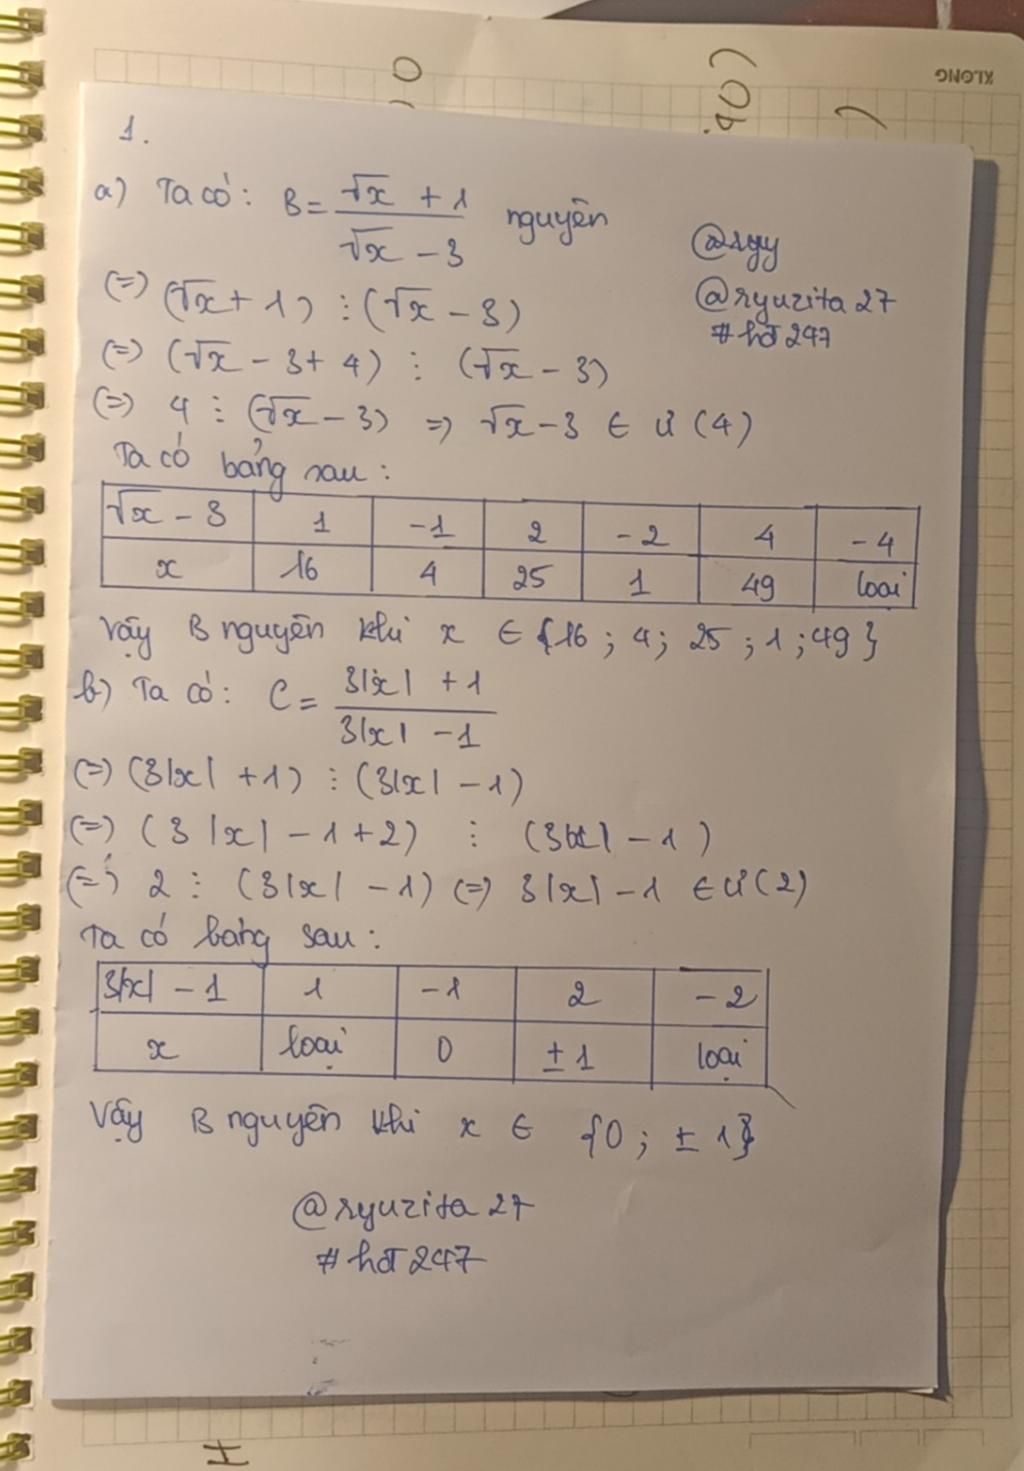 XLONG
1.
a) Ta có: B = (√x + 1)/(√x - 3) nguyên
@ryy
(=) (√x + 1) ⋮ (√x - 3)
@ryuzita27
#hđ247
(=) (√x - 3 + 4) ⋮ (√x - 3)
(=) 4 ⋮ (√x - 3) => √x - 3 ∈ Ư(4)
Ta có bảng sau:
√x - 3 1 -1 2 -2 4 -4
x 16 4 25 1 49 loại
Vậy B nguyên khi x ∈ {16; 4; 25; 1; 49}
b) Ta có: C = (3|x| + 1)/(3|x| - 1)
(=) (3|x| + 1) ⋮ (3|x| - 1)
(=) (3|x| - 1 + 2) ⋮ (3|x| - 1)
(=) 2 ⋮ (3|x| - 1) (=) 3|x| - 1 ∈ Ư(2)
Ta có bảng sau:
3|x| - 1 1 -1 2 -2
x loại 0 ±1 loại
Vậy B nguyên khi x ∈ {0; ±1}
@ryuzita27
#hđ247